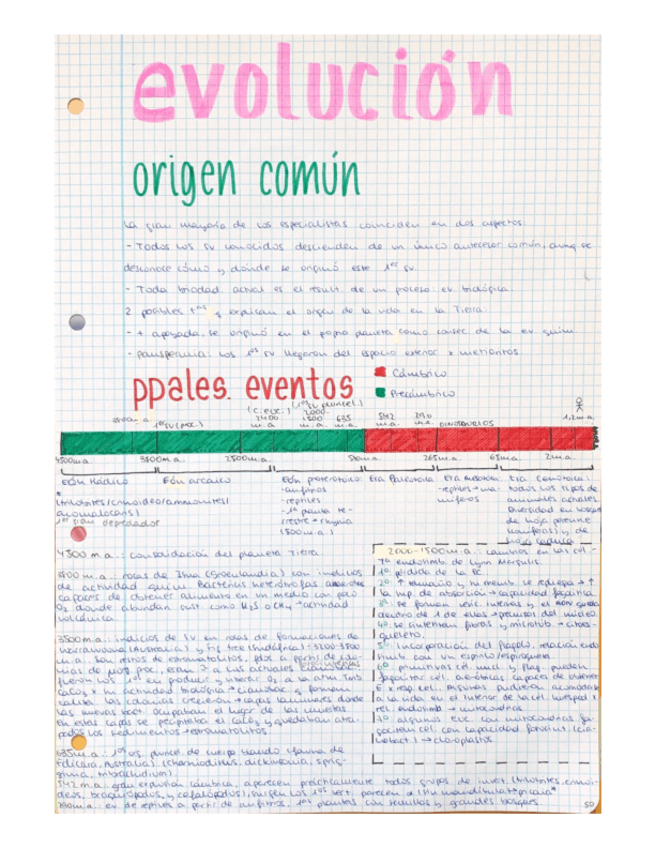 evolución
origen común
La gran mayoría de los especialistas coinciden en dos aspectos:
- Todos los sv conocidos descienden de un único antecesor común, aunq se
desconoce cómo y dónde se originó este 1er sv.
- Toda biodad. actual es el result. de un proceso ev. biológica.
2 posibles explican el origen de la vida en la Tierra:
- + apoyada: se originó en el propio planeta como consec de la ev. quím.
- Panspermia: los 1os sv llegaron del espacio exterior x meteoritos.
ppales. eventos
Cámbrico
Precámbrico
(c. euc.) 2400 m.a.
(1os sv pluricel.) 2000-1500 m.a.
635 m.a.
542 m.a.
DINOSAURIOS
1,2 m.a.
4500 m.a. 3800 m.a. 2500 m.a. 265 m.a. 65 m.a. 2 m.a.
EÓN Hádico
Eón arcaico
Eón proterozoico:
-anfibios
-reptiles
-1a planta te-
rrestre → rhynia
(500 m.a.)
Era Paleozoica
Era mesozoica:
-reptiles → ma-
míferos
Era Cenozoica:
todos los tipos de
animales actuales
Diversidad en bosques
de hoja perenne
(coníferas) y de
hoja caduca
(trilobites/crinoideo/ammonites/
anomalocaris)
1er gran depredador
4500 m.a.: consolidación del planeta Tierra
3800 m.a.: rocas de Isua (Groenlandia) con indicios
de actividad quím. Bacterias heterótrofas
capaces de obtener alimento en un medio con poco
O2 donde abundan sust. como H2S o CH4 → actividad
volcánica.
3500 m.a.: indicios de sv en rocas de formaciones de
Warrawoona (Australia) y Fig tree (Sudáfrica): 3100-3500
m.a. Son restos de estromatolitos, fdos a partir de
de proc, eran los actuales
fueron los 1os en producir y liberar O2 a la atm.
CaCO3 x su actividad biológica → cianobac. y forman
caliza. Las colonias crecieron → capas laminares donde
las nuevas bact ocupaban el lugar de las muertas
En estas capas se precipitaba el CaCO3 y quedaban atra-
pados los sedimentos → estromatolitos
2000-1500 m.a.: cambios en las cél -
Ta endosimb. de Lynn Margulis.
1o pérdida de la PC
2o ↑ tamaño y su memb. se repliega → ↑
la sup. de absorción → capacidad fagocítica
3o se forman vesíc. internas y el ADN queda
dentro de 1 de ellas → precursor del núcleo.
4o se sintetizan fibras y microtúb. → citoes-
queleto.
5o Incorporación del flagelo, relación endo-
simb. con un espiroqueta
6o primitivas cél. nucl. y flag. pueden
fagocitar cél. aeróbicas capaces de obtener
E x resp. cel. Algunas pudieron acomodarse
a la vida en el interior de la cél. huésped x
rel. endosimb → mitocondrias
7o algunas euc. con mitocondrias fa-
gocitan cél. con capacidad fotosint. (cia-
nobact.) → cloroplastos
635 m.a.: 1os org. pluricel. de cuerpo blando (fauna de
Ediacara, Australia). (charniodiscus, dickinsonia, sprig-
gina, tribrachidium).
542 m.a.: gran explosión cámbrica, aparecen prácticamente todos grupos de invert. (trilobites, crinoi-
deos, braquiópodos, y cefalópodos), surgen los 1os vert. parecen a (sin mandíbula → pikaia*
: ev. de reptiles a partir de anfibios, 1as plantas con semillas y grandes bosques.
50